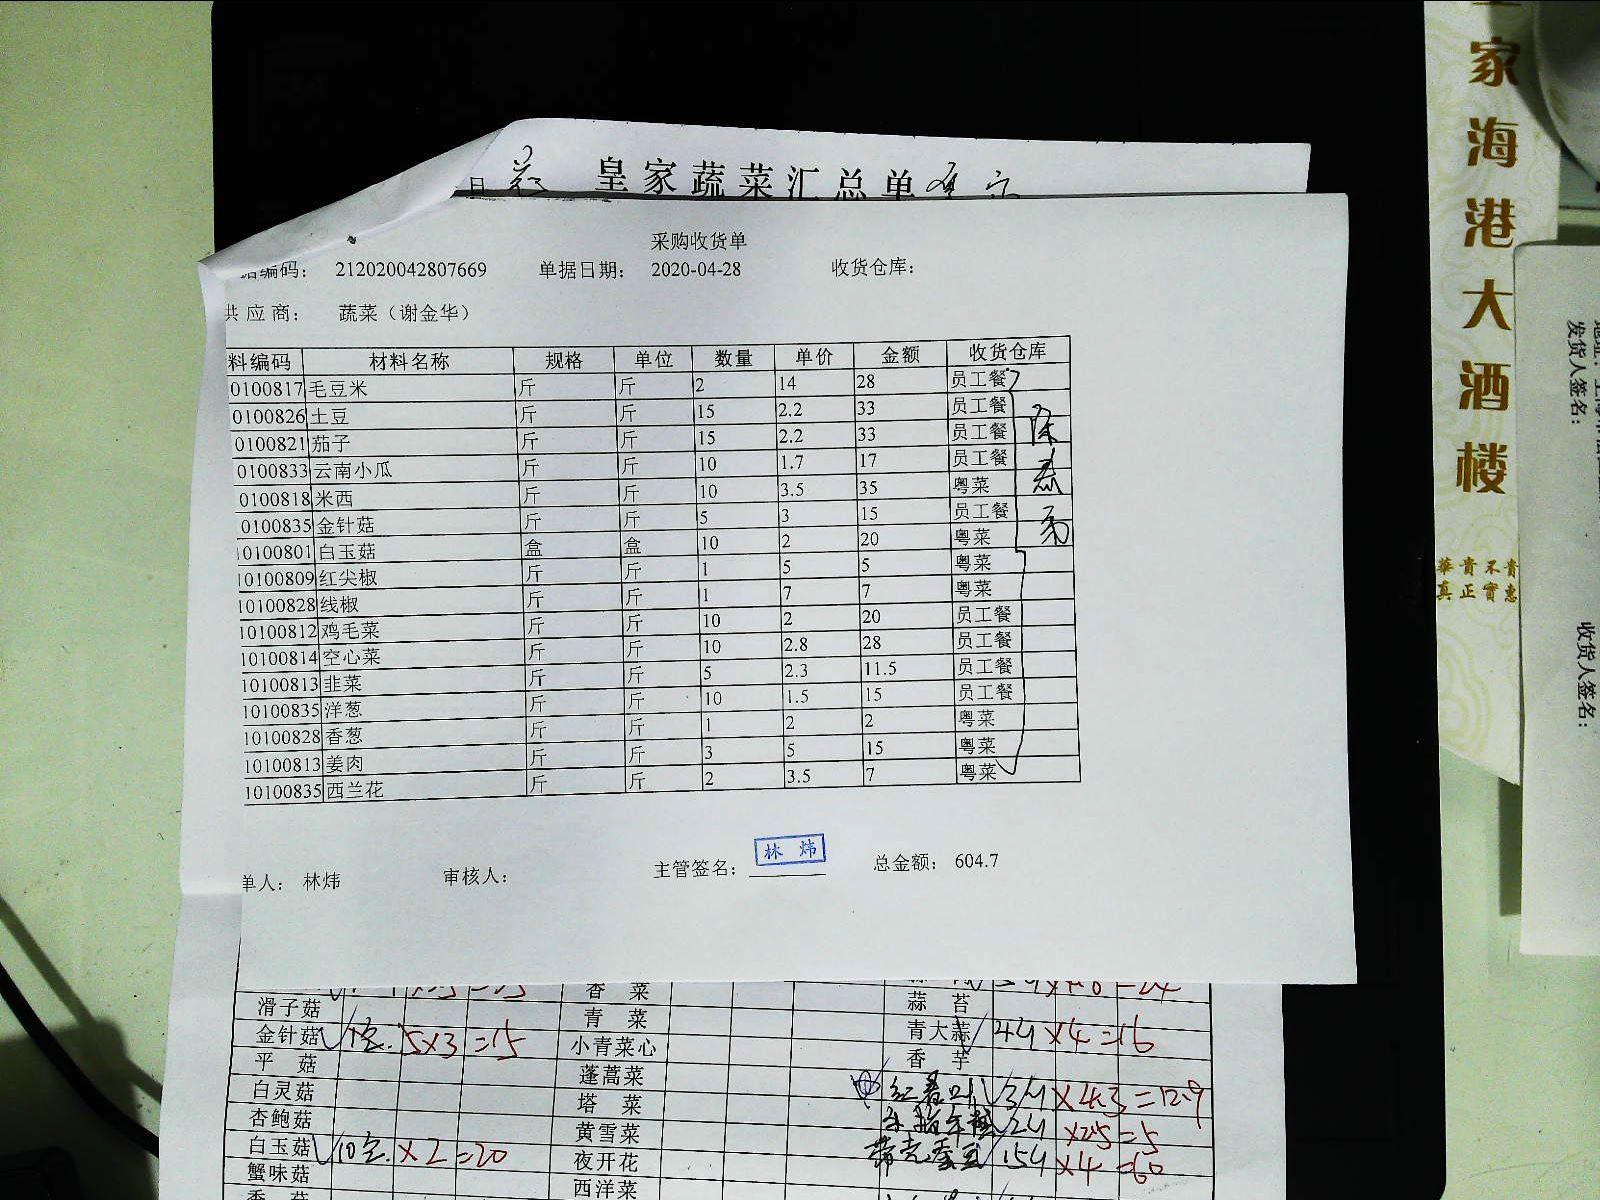 皇家蔬菜汇总单
日
采购收货单
据编码： 212020042807669 单据日期： 2020-04-28 收货仓库：
共应商： 蔬菜（谢金华）
料编码 材料名称 规格 单位 数量 单价 金额 收货仓库
0100817 毛豆米 斤 斤 2 14 28 员工餐
0100826 土豆 斤 斤 15 2.2 33 员工餐
0100821 茄子 斤 斤 15 2.2 33 员工餐
0100833 云南小瓜 斤 斤 10 1.7 17 员工餐
0100818 米西 斤 斤 10 3.5 35 粤菜
0100835 金针菇 斤 斤 5 3 15 员工餐
10100801 白玉菇 盒 盒 10 2 20 粤菜
10100809 红尖椒 斤 斤 1 5 5 粤菜
10100828 线椒 斤 斤 1 7 7 粤菜
10100812 鸡毛菜 斤 斤 10 2 20 员工餐
10100814 空心菜 斤 斤 10 2.8 28 员工餐
10100813 韭菜 斤 斤 5 2.3 11.5 员工餐
10100835 洋葱 斤 斤 10 1.5 15 员工餐
10100828 香葱 斤 斤 1 2 2 粤菜
10100813 姜肉 斤 斤 3 5 15 粤菜
10100835 西兰花 斤 斤 2 3.5 7 粤菜
单人： 林炜 审核人： 主管签名： 林炜 总金额： 604.7
香菜
滑子菇 青菜 蒜苔
金针菇 5×3=15 小青菜心 青大蒜 4×4=16
平菇 蓬蒿菜 香芋
白灵菇 塔菜 3×4.3=12.9
杏鲍菇 黄雪菜 2×2.5=5
白玉菇 10盒×2=20 夜开花 带壳蚕豆 15×4=60
蟹味菇 西洋菜
家海港大酒楼
華貴不貴
真正實惠
发货人签名：
收货人签名：